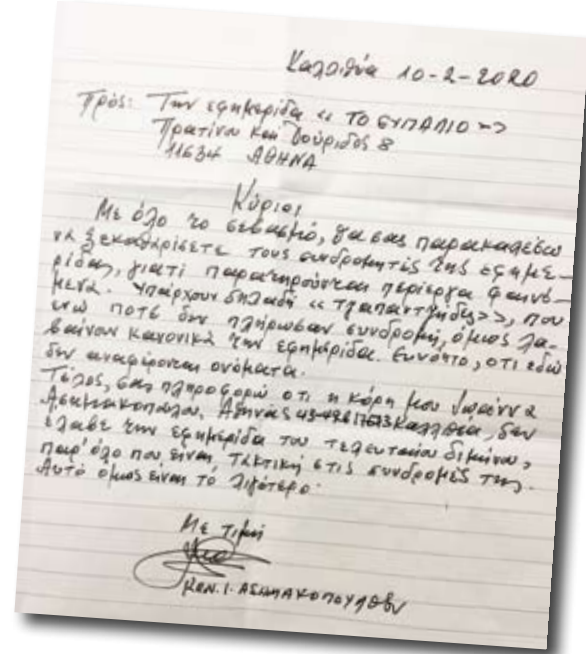 Καλλιθέα 10-2-2020
Πρός: Την εφημερίδα «ΤΟ ΕΥΠΑΛΙΟ»
Πρατίνου και Δούριδος 8
11634 ΑΘΗΝΑ
Κύριοι,
Με όλο το σεβασμό, θα σας παρακαλέσω
να ξεκαθαρίσετε τους συνδρομητές της εφημε-
ρίδας, γιατί παρατηρούνται περίεργα φαινό-
μενα. Υπάρχουν δηλαδή «τζαπαντζήδες», που
ενώ ποτέ δεν πλήρωσαν συνδρομή, όμως λα-
βαίνουν κανονικά την εφημερίδα. Ευνόητο, ότι εδώ
δεν αναφέρονται ονόματα.
Τέλος, σας πληροφορώ ότι η κόρη μου Ιωάννα
Ασημακοπούλου, Αθηνάς Καλλιθέα, δεν
έλαβε την εφημερίδα του τελευταίου διμήνου,
παρ' όλο που είναι τακτική στις συνδρομές της.
Αυτό όμως είναι τό λιγότερο.
Με τιμή
ΚΩΝ. Ι. ΑΣΗΜΑΚΟΠΟΥΛΟΣ